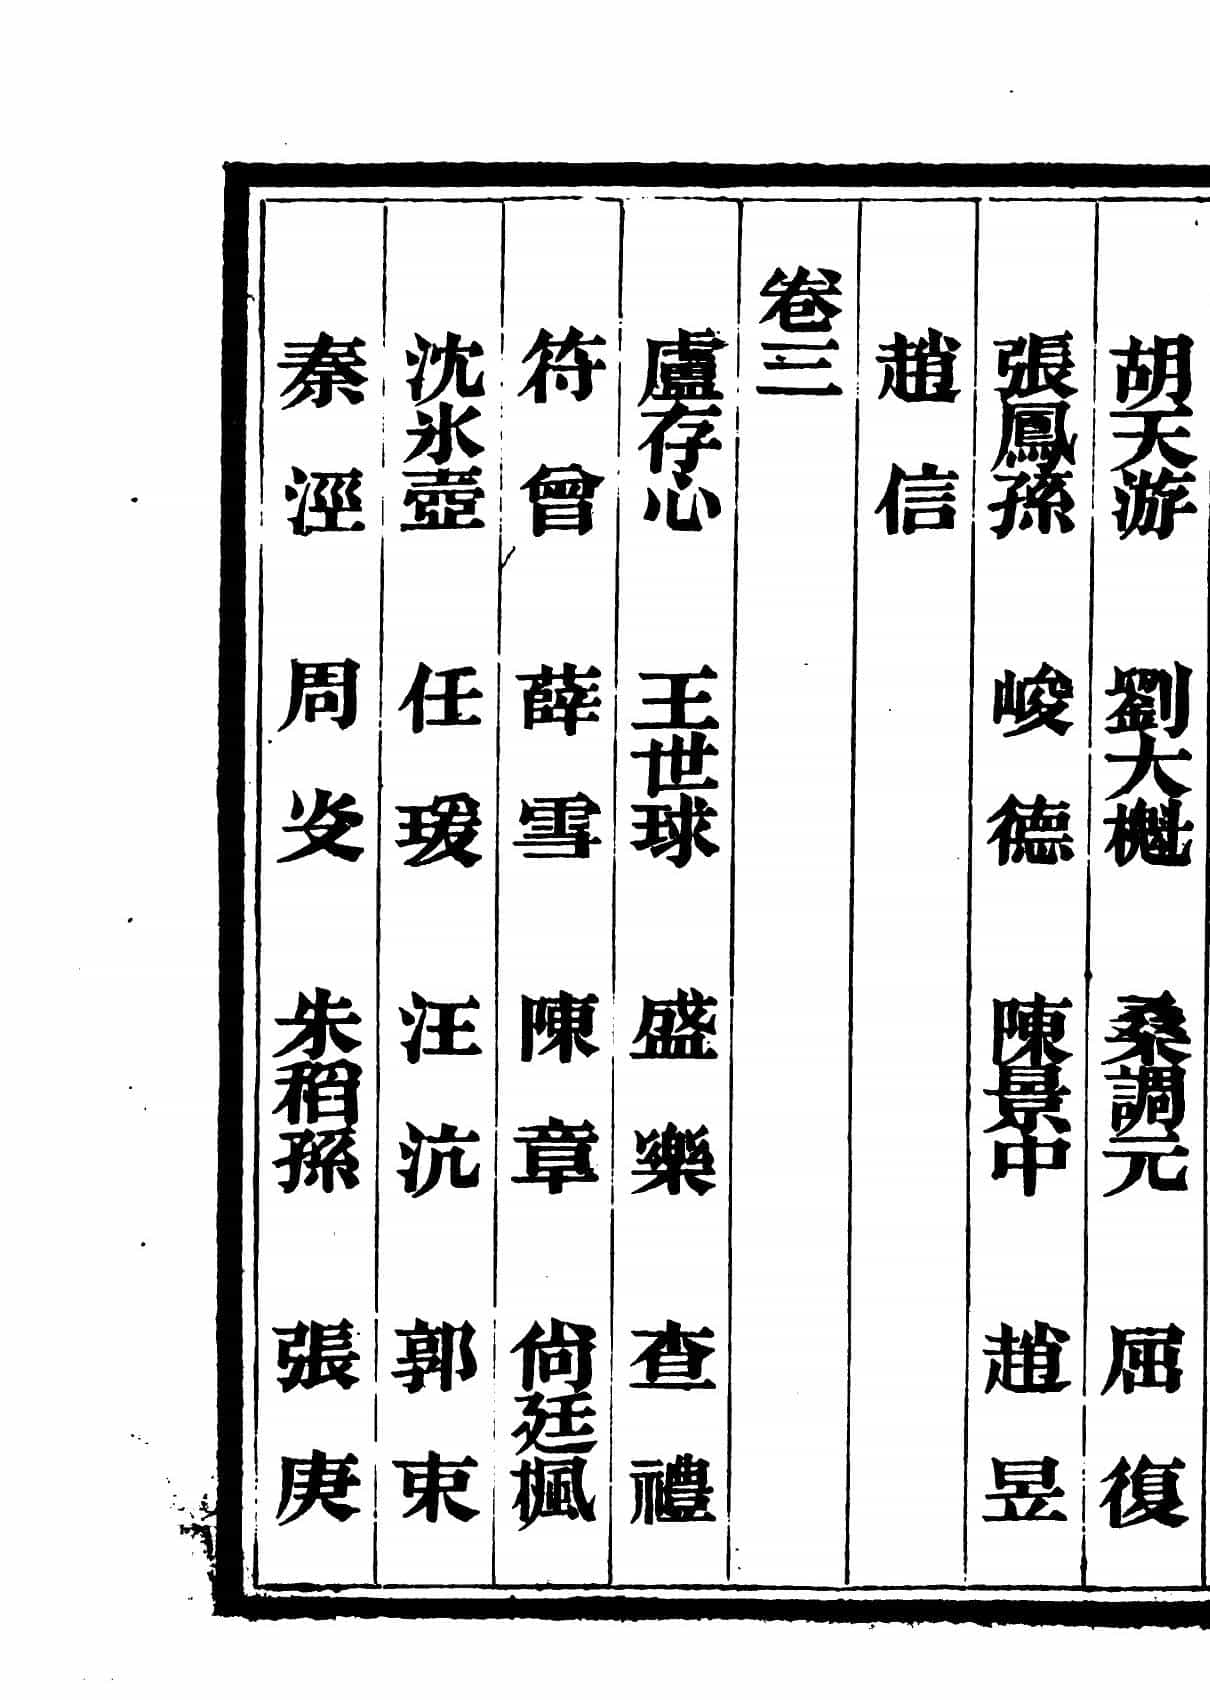 胡天游　劉大櫆　桑調元　屈復
張鳳孫　峻德　陳景中　趙昱
趙信
卷三
盧存心　王世球　盛樂　查禮
符曾　薛雪　陳章　尙廷楓
沈氷壺　任瑗　汪沆　郭束
秦涇　周㞮　朱稻孫　張庚